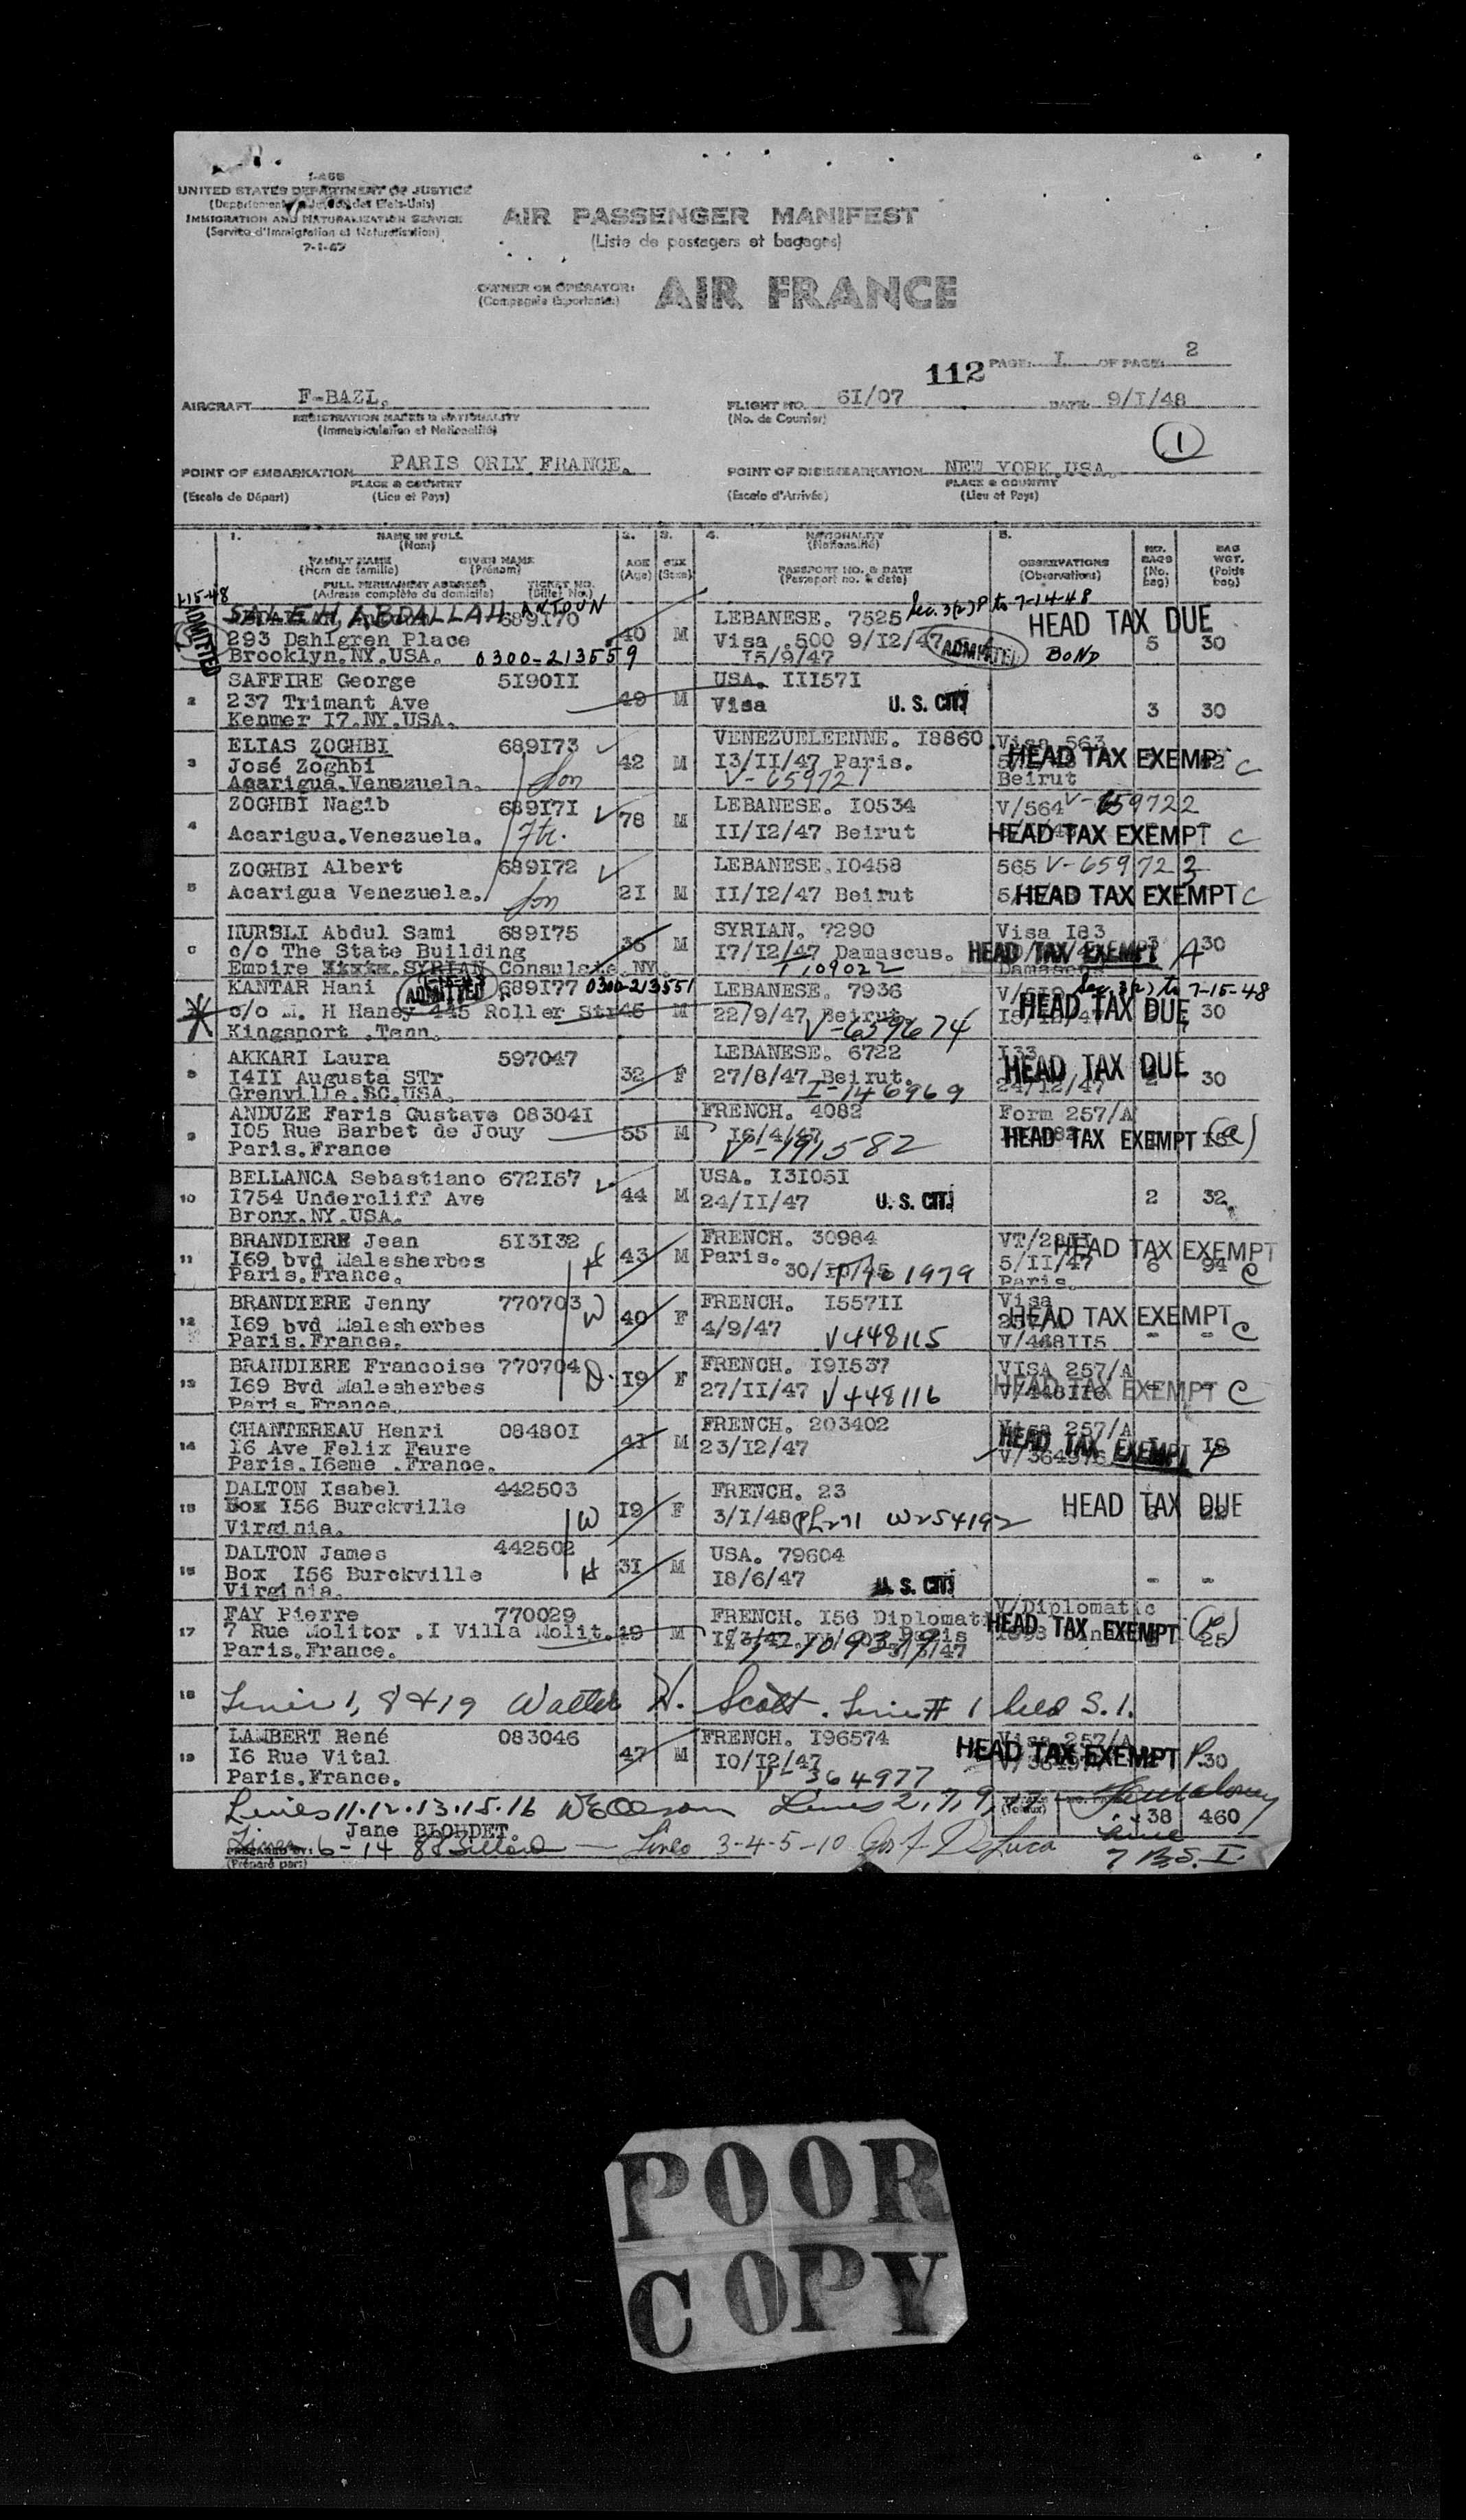 I-466
UNITED STATES DEPARTMENT OF JUSTICE
IMMIGRATION AND NATURALIZATION SERVICE
(Service d'Immigration et Naturalisation)
7-1-47
AIR PASSENGER MANIFEST
(Liste de passagers et bagages)
OWNER OR OPERATOR: AIR FRANCE
(Compagnie Exportante)
112 PAGE: I OF PAGE: 2
AIRCRAFT F-BAZL. FLIGHT NO. 6I/07 DATE 9/I/48
REGISTRATION MARKS & NATIONALITY (No. de Courrier)
(Immatriculation et Nationalité)
1
POINT OF EMBARKATION PARIS ORLY FRANCE. POINT OF DISEMBARKATION NEW YORK.USA.
PLACE & COUNTRY PLACE & COUNTRY
(Escale de Départ) (Lieu et Pays) (Escale d'Arrivée) (Lieu et Pays)
1. NAME IN FULL 2. 3. 4. NATIONALITY 5.
(Nom) (Nationalité)
FAMILY NAME GIVEN NAME AGE SEX PASSPORT NO. & DATE OBSERVATIONS NO. BAGS BAG WGT.
(Nom de famille) (Prénom) (Age) (Sexe) (Passeport no. & date) (Observations) (No. bag) (Poids bag)
FULL PERMANENT ADDRESS TICKET NO.
(Adresse complète du domicile) (Billet No.)
1-15-48 ADMITTED
SALEH, ABDALLAH ANTOUN 689I70 LEBANESE. 7525 Sec. 3(2) P to 7-14-48 HEAD TAX DUE
293 Dahlgren Place 40 M Visa .500 9/12/47 ADMITTED 5 30
Brooklyn.NY.USA. 0300-213559 I5/9/47 BOND
SAFFIRE George 5I90II USA. III57I
2 237 Trimant Ave 49 M Visa U. S. CIT. 3 30
Kenmer I7.NY.USA.
ELIAS ZOGHBI 689I73 VENEZUELEENNE. I8860 Visa 563
3 José Zoghbi 42 M I3/II/47 Paris. HEAD TAX EXEMPT C
Acarigua.Venezuela. Son V-659721 Beirut
ZOGHBI Nagib 689I7I LEBANESE. I0534 V/564 V-659722
4 Acarigua.Venezuela. 78 M II/I2/47 Beirut HEAD TAX EXEMPT C
ZOGHBI Albert 689I72 LEBANESE.I0458 565 V-659723
5 Acarigua Venezuela. Son 2I M II/I2/47 Beirut HEAD TAX EXEMPT C
HURBLI Abdul Sami 689I75 SYRIAN. 7290 Visa I83
6 c/o The State Building 36 M I7/I2/47 Damascus. HEAD TAX EXEMPT A 30
Empire SYRIAN Consulate.NY. T 109022 Damascus
KANTAR Hani ADMITTED 689I77 0300-213551 LEBANESE. 7936 Sec. 3(2) to 7-15-48
c/o M. H Haney 445 Roller Str 45 M 22/9/47 Beirut HEAD TAX DUE 30
Kingsport .Tenn. V-659674
AKKARI Laura 597047 LEBANESE. 6722 I33
8 I4II Augusta STr 32 F 27/8/47 Beirut. HEAD TAX DUE 30
Grenville.SC.USA. I-146969 24/I2/47
ANDUZE Faris Gustave 08304I FRENCH. 4082 Form 257/A
9 I05 Rue Barbet de Jouy 55 M I6/4/47 HEAD TAX EXEMPT
Paris.France V-191582
BELLANCA Sebastiano 672I57 USA. I3I05I
10 I754 Undercliff Ave 44 M 24/II/47 U. S. CIT. 2 32
Bronx.NY.USA.
BRANDIERE Jean 5I3I32 FRENCH. 30984
11 I69 bvd Malesherbes H 43 M Paris. 5/II/47 HEAD TAX EXEMPT 6 94 C
Paris.France. Paris.
BRANDIERE Jenny 770703 FRENCH. I557II Visa
12 I69 bvd Malesherbes W 40 F 4/9/47 HEAD TAX EXEMPT - - C
Paris.France. V448115 V/448II5
BRANDIERE Francoise 770704 FRENCH. I9I537 VISA 257/A
13 I69 Bvd Malesherbes D. I9 F 27/II/47 V448116 V/448II6 HEAD TAX EXEMPT C
Paris.France.
CHANTEREAU Henri 08480I FRENCH. 203402 Visa 257/A
14 I6 Ave Felix Faure 4I M 23/I2/47 HEAD TAX EXEMPT
Paris.I6eme .France. V/364976
DALTON Isabel 442503 FRENCH. 23
15 Box I56 Burckville W I9 F 3/I/48 HEAD TAX DUE
Virginia.
DALTON James 442502 USA. 79604
16 Box I56 Burckville H 3I M I8/6/47 U. S. CIT. - -
Virginia.
FAY Pierre 770029 FRENCH. I56 Diplomati V/Diplomatic
17 7 Rue Molitor .I Villa Molit. 49 M HEAD TAX EXEMPT (P) 25
Paris.France.
18 Lines 1, 8 & 19 Walter H. Scott. Line # 1 held S.I.
LAMBERT René 083046 FRENCH. I96574 Visa 257/A
19 I6 Rue Vital 47 M I0/I2/47 HEAD TAX EXEMPT P. 30
Paris.France. V 364977
Lines 11.12.13.15.16 Lines 2, 7, 9, 17 38 460
Jane BLOUDET.
Lines 6-14 Lines 3-4-5-10 Gus A. DeLuca
(Préparé par:) Line 7 B.S.I.
POOR
COPY